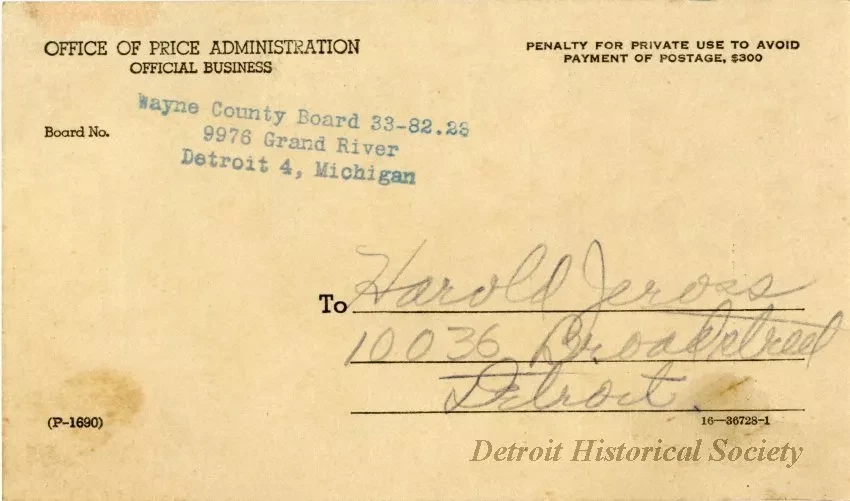 OFFICE OF PRICE ADMINISTRATION
OFFICIAL BUSINESS
PENALTY FOR PRIVATE USE TO AVOID
PAYMENT OF POSTAGE, $300
Board No.
Wayne County Board 33-82.28
9976 Grand River
Detroit 4, Michigan
To Harold Jeross
10036 Broadstreet
Detroit.
(P-1690)
16—36728-1
Detroit Historical Society